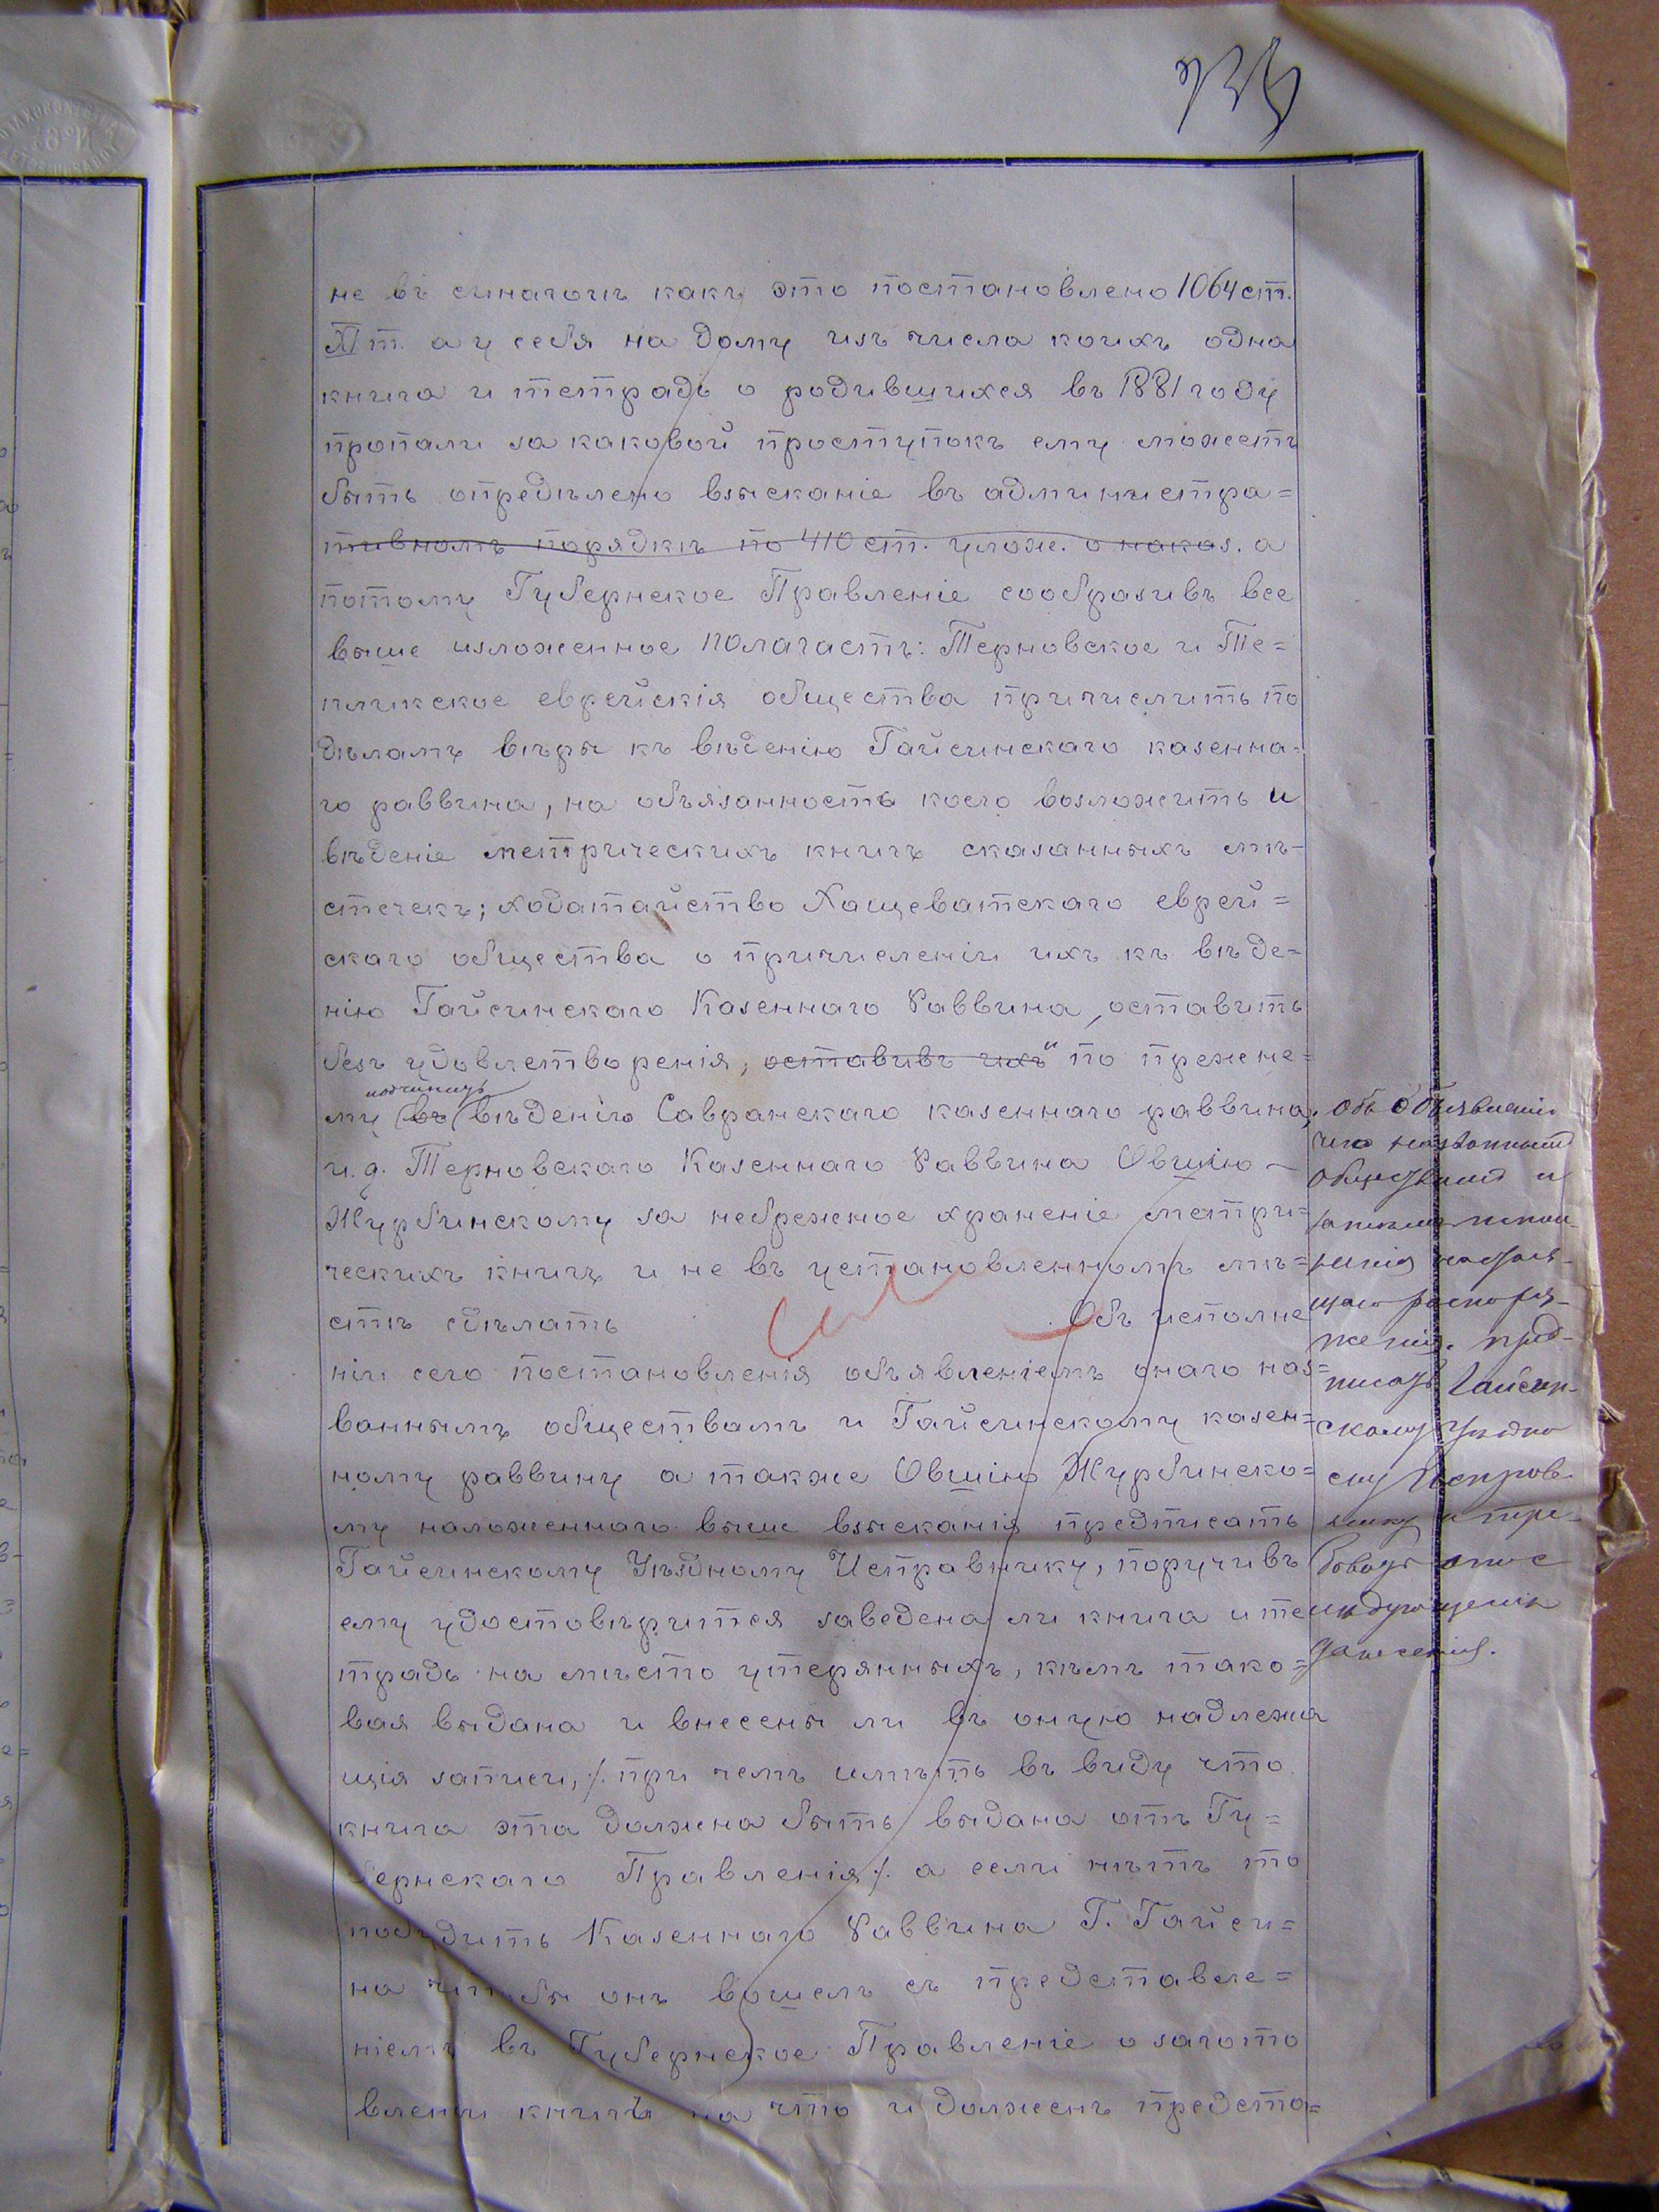 не въ синагогѣ какъ это постановлено 1064 ст.
XI т. а у себя на дому изъ числа коихъ одна
книга и тетрадь о родившихся въ 1881 году
пропали за каковой проступокъ ему можетъ
быть опредѣлено взысканіе въ администра=
тивномъ порядкѣ по 410 ст. улож. о наказ. а
потому Губернское Правленіе сообразивъ все
выше изложенное полагаетъ: Терновское и Те=
пликское еврейскія общества причислить по
дѣламъ вѣры къ вѣденію Гайсинскаго казенна=
го раввина, на обязанность коего возложить и
вѣденіе метрическихъ книгъ сказанныхъ мѣ-
стечекъ; ходатайство Хащеватскаго еврей=
скаго общества о причисленіи ихъ къ вѣде=
нію Гайсинскаго Казеннаго Раввина, оставить
безъ удовлетворенія, оставивъ ихъ по прежне=
му (въ) вѣденію Савранскаго казеннаго раввина,
и.д. Терновскаго Казеннаго Раввина Овшію
Журбинскому за небрежное храненіе метри=
ческихъ книгъ и не въ установленномъ мѣ=
стѣ сдѣлать Объ исполне
ніи сего постановленія объявленіемъ онаго наз=
ваннымъ обществамъ и Гайсинскому казен=
ному раввину а также Овшію Журбинско=
му наложеннаго выше взысканія предписать
Гайсинскому Уѣздному Исправнику, поручивъ
ему удостовѣрится заведена ли книга и те
традь на мѣсто утерянныхъ, кѣмъ тако=
вая выдана и внесены ли въ оную надлежа
щія записи, ./. при чемъ имѣть въ виду что
книга эта должна быть выдана отъ Гу=
бернскаго Правленія ./. а если нѣтъ то
побудить Казеннаго Раввина Г. Гайси=
на чтобы онъ вошелъ съ представле=
ніемъ въ Губернское Правленіе о загото
вленіи книгъ на что и долженъ предста=
Объ объявленіи
чего
обществамъ и
настоя-
щаго распоря-
женія, пред-
писать Гайсин-
скому Уѣздно
му Исправ-
нику и тре-
бовать
донесенія.